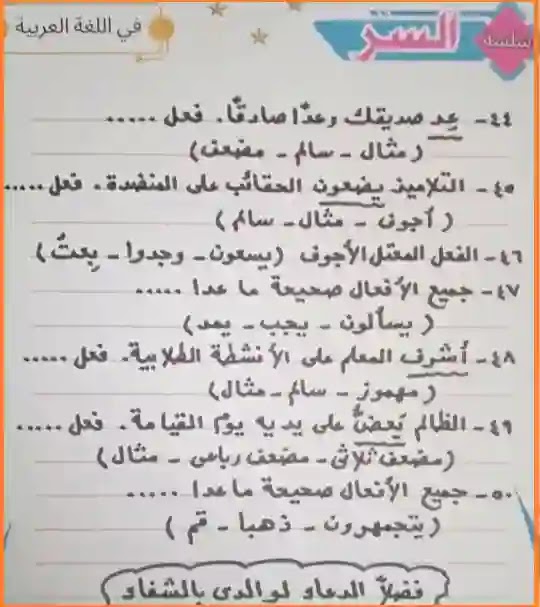 سلسلة السر في اللغة العربية
٤٤- عِد صديقك وعدًا صادقًا. فعل .....
( مثال - سالم - مضعف )
٤٥- التلاميذ يضعون الحقائب على المنضدة. فعل .....
( أجوف - مثال - سالم )
٤٦- الفعل المعتل الأجوف ( يسعون - وجدوا - بِعتُ )
٤٧- جميع الأفعال صحيحة ما عدا .....
( يسألون - يجب - يمد )
٤٨- أشرف المعلم على الأنشطة الطلابية. فعل .....
( مهموز - سالم - مثال )
٤٩- الظالم يَعضُّ على يديه يوم القيامة. فعل .....
( مضعف ثلاثى - مضعف رباعى - مثال )
٥٠- جميع الأفعال صحيحة ما عدا .....
( يتجمهرون - ذهبا - قم )
فضلًا الدعاء لوالدى بالشفاء